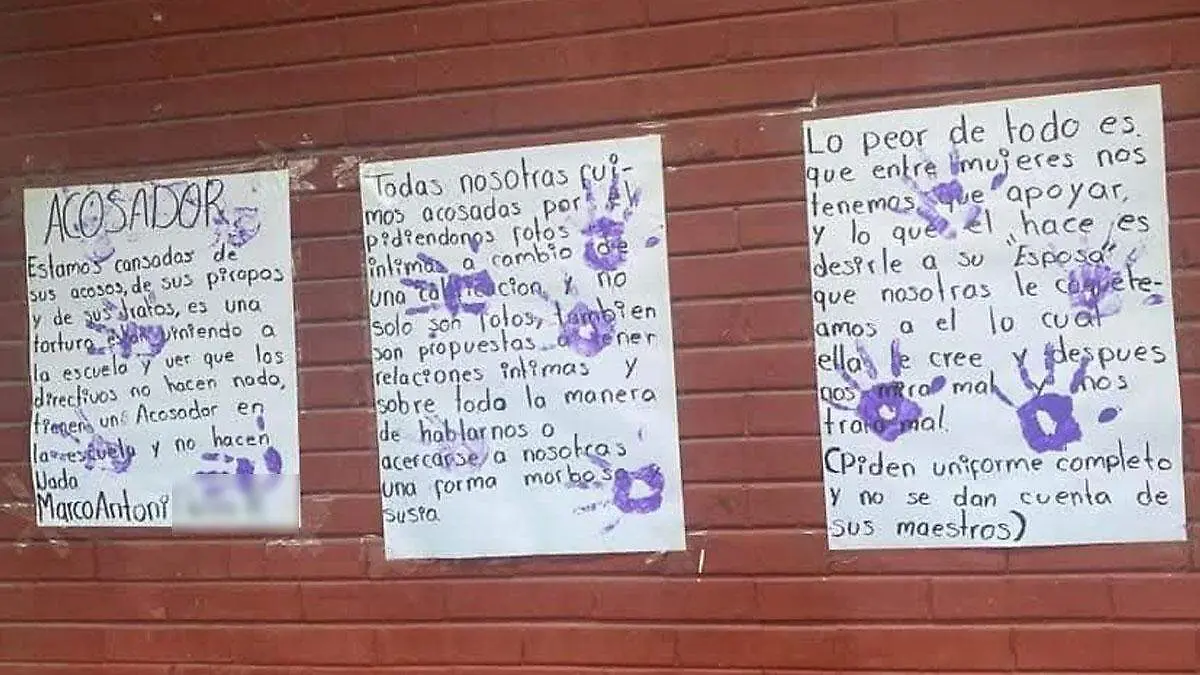 ACOSADOR
Estamos cansadas de
sus acosos, de sus piropos
y de sus tratos, es una
tortura viniendo a
la escuela y ver que los
directivos no hacen nada,
tienen un Acosador en
la escuela y no hacen
Nada
Marco Antoni
Todas nosotras fui-
mos acosadas por
pidiendonos fotos
intimas a cambio de
una calificacion y no
solo son fotos, tambien
son propuestas a tener
relaciones intimas y
sobre todo la manera
de hablarnos o
acercarse a nosotras
una forma morbosa
susia
Lo peor de todo es.
que entre mujeres nos
tenemos que apoyar,
y lo que el hace es
desirle a su "Esposa"
que nosotras le coquete-
amos a el lo cual
ella le cree y despues
nos mira mal y nos
trata mal.
(Piden uniforme completo
y no se dan cuenta de
sus maestros)